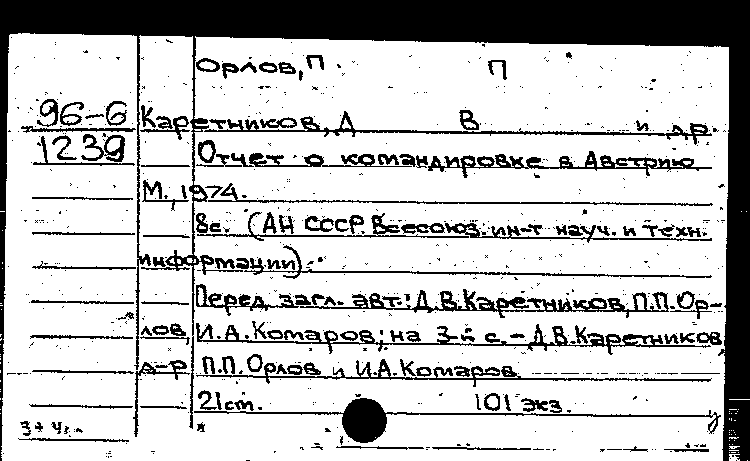 Орлов, П. П
96-6 Каретников, Д В и др.
1239 Отчет о командировке в Австрию
М., 1974.
8с. (АН СССР. Всесоюз. ин-т науч. и техн.
информации).
Перед загл. авт.: Д.В.Каретников, П.П.Ор-
лов, И.А.Комаров; на 3-й с. - Д.В.Каретников,
д-р П.П.Орлов и И.А.Комаров.
21см. 101 экз.
у